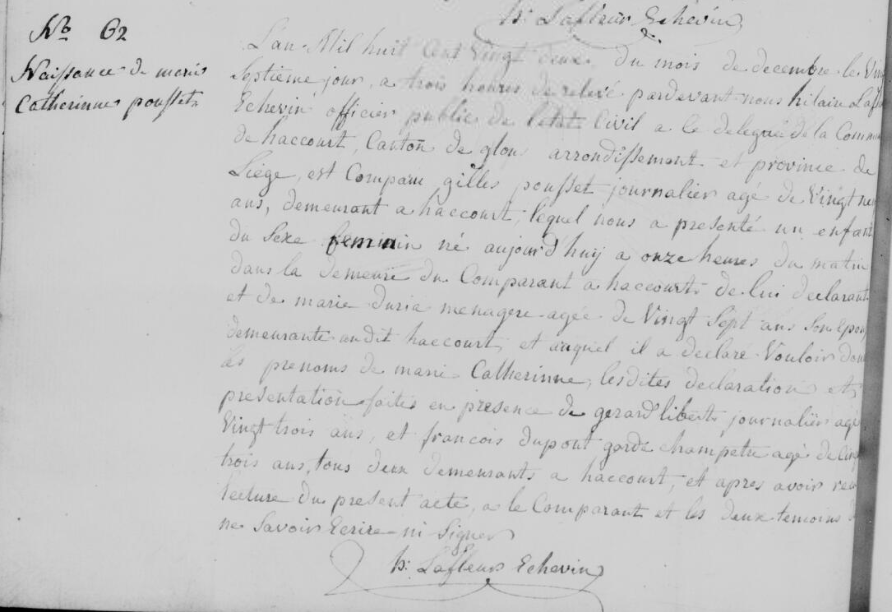 h: Lafleur Echevin
No 62
Naissance de marie
Catherinne pousset
Lan Mil huit Cent Vingt deux, du mois de decembre le Vingt
Septieme jour, a trois heures de relevé pardevant nous hilaire Lafleur
Echevin officier public de letat Civil a ce delegué de la Commune
de haccourt, Canton de glons arrondissement et province de
Liège, est Comparu gilles pousset journalier agé de Vingt neuf
ans, demeurant a haccourt, lequel nous a presenté un enfant
du Sexe feminin né aujourd'huy a onze heures du matin
dans la demeure du Comparant a haccourt de lui declarant
et de marie duria menagere agée de Vingt Sept ans Son Epouse
demeurante audit haccourt, et auquel il a declaré Vouloir donner
les prenoms de marie Catherinne, lesdites declaration et
presentation faites en presence de gerard liberts journalier agé
Vingt trois ans, et francois dupont garde champetre agé de Cinq
trois ans, tous deux demeurants a haccourt, et apres avoir
lecture du present acte, a le Comparant et les deux temoins
ne Savoir Ecrire ni Signer
h: Lafleur Echevin